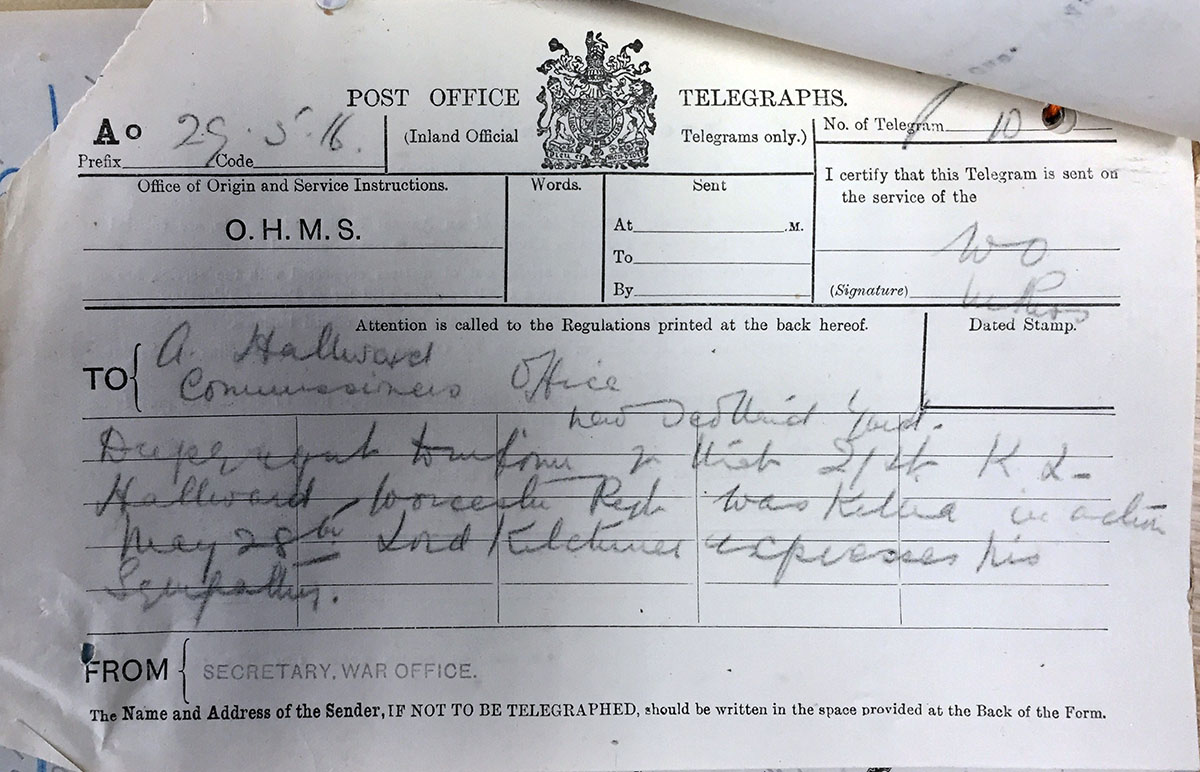 POST OFFICE TELEGRAPHS.
A o 29.5.16.
Prefix Code
(Inland Official Telegrams only.)
No. of Telegram 10
Office of Origin and Service Instructions.
O.H.M.S.
Words.
Sent
At .M.
To
By
I certify that this Telegram is sent on
the service of the
WO
(Signature)
Attention is called to the Regulations printed at the back hereof.
Dated Stamp.
TO
A. Hallward
Commissioners Office
New Scotland Yard.
Deeply regret to inform you that 2/Lt K L
Hallward Worcester Regt was killed in action
May 28th Lord Kitchener expresses his
Sympathy.
FROM SECRETARY, WAR OFFICE.
The Name and Address of the Sender, IF NOT TO BE TELEGRAPHED, should be written in the space provided at the Back of the Form.